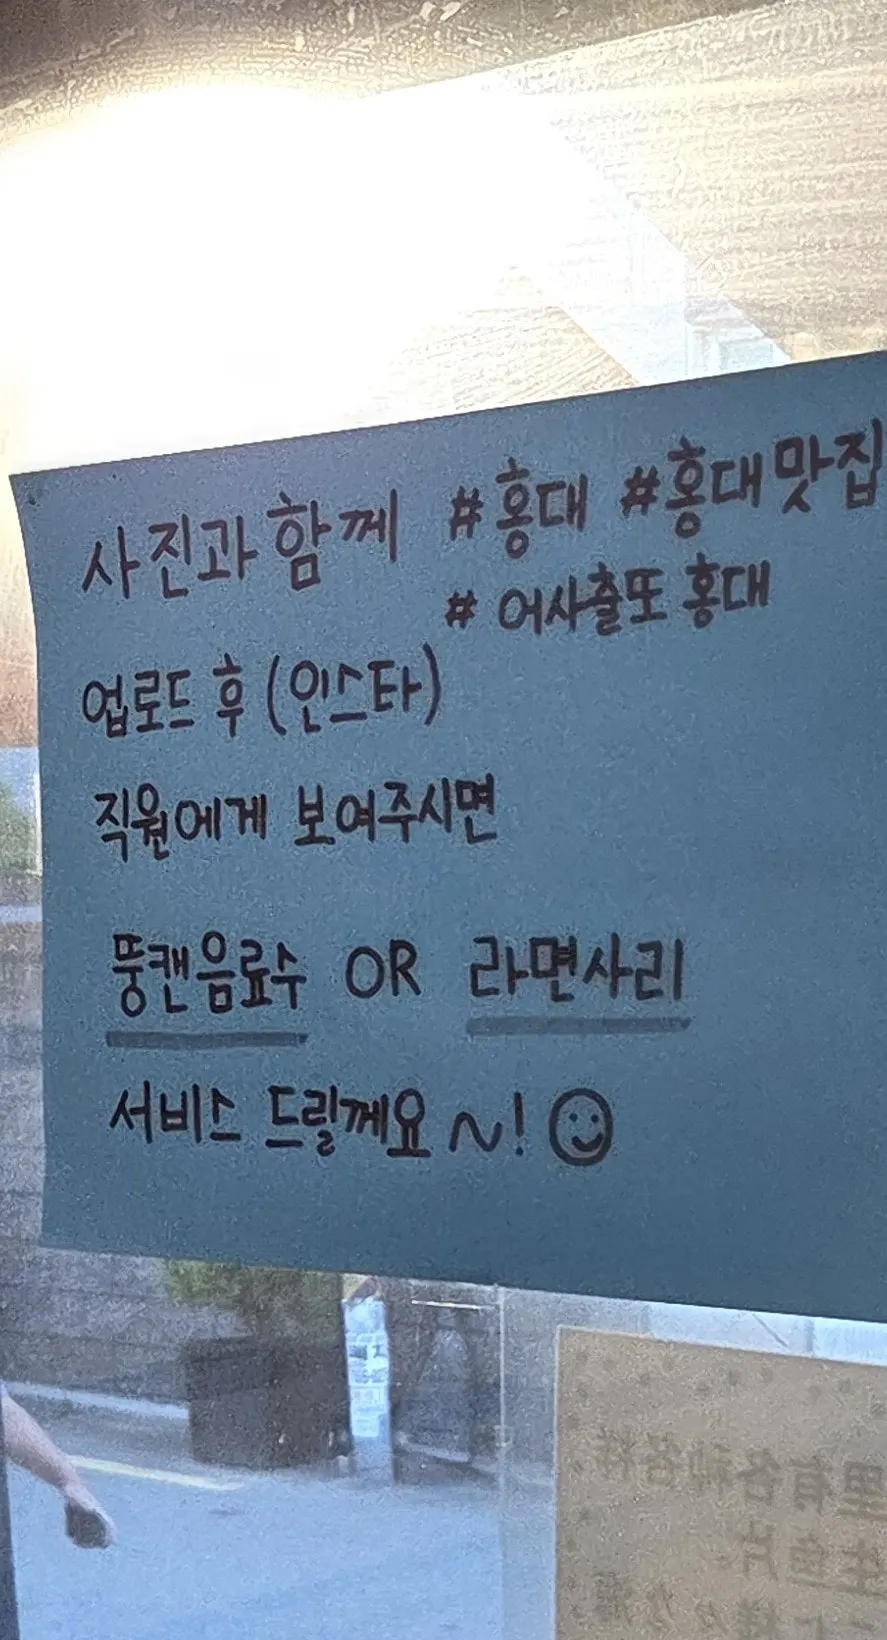 사진과 함께 #홍대 #홍대맛집
# 어사출또 홍대
업로드 후 (인스타)
직원에게 보여주시면
뚱캔음료수 OR 라면사리
서비스 드릴께요~!
里有各种各样